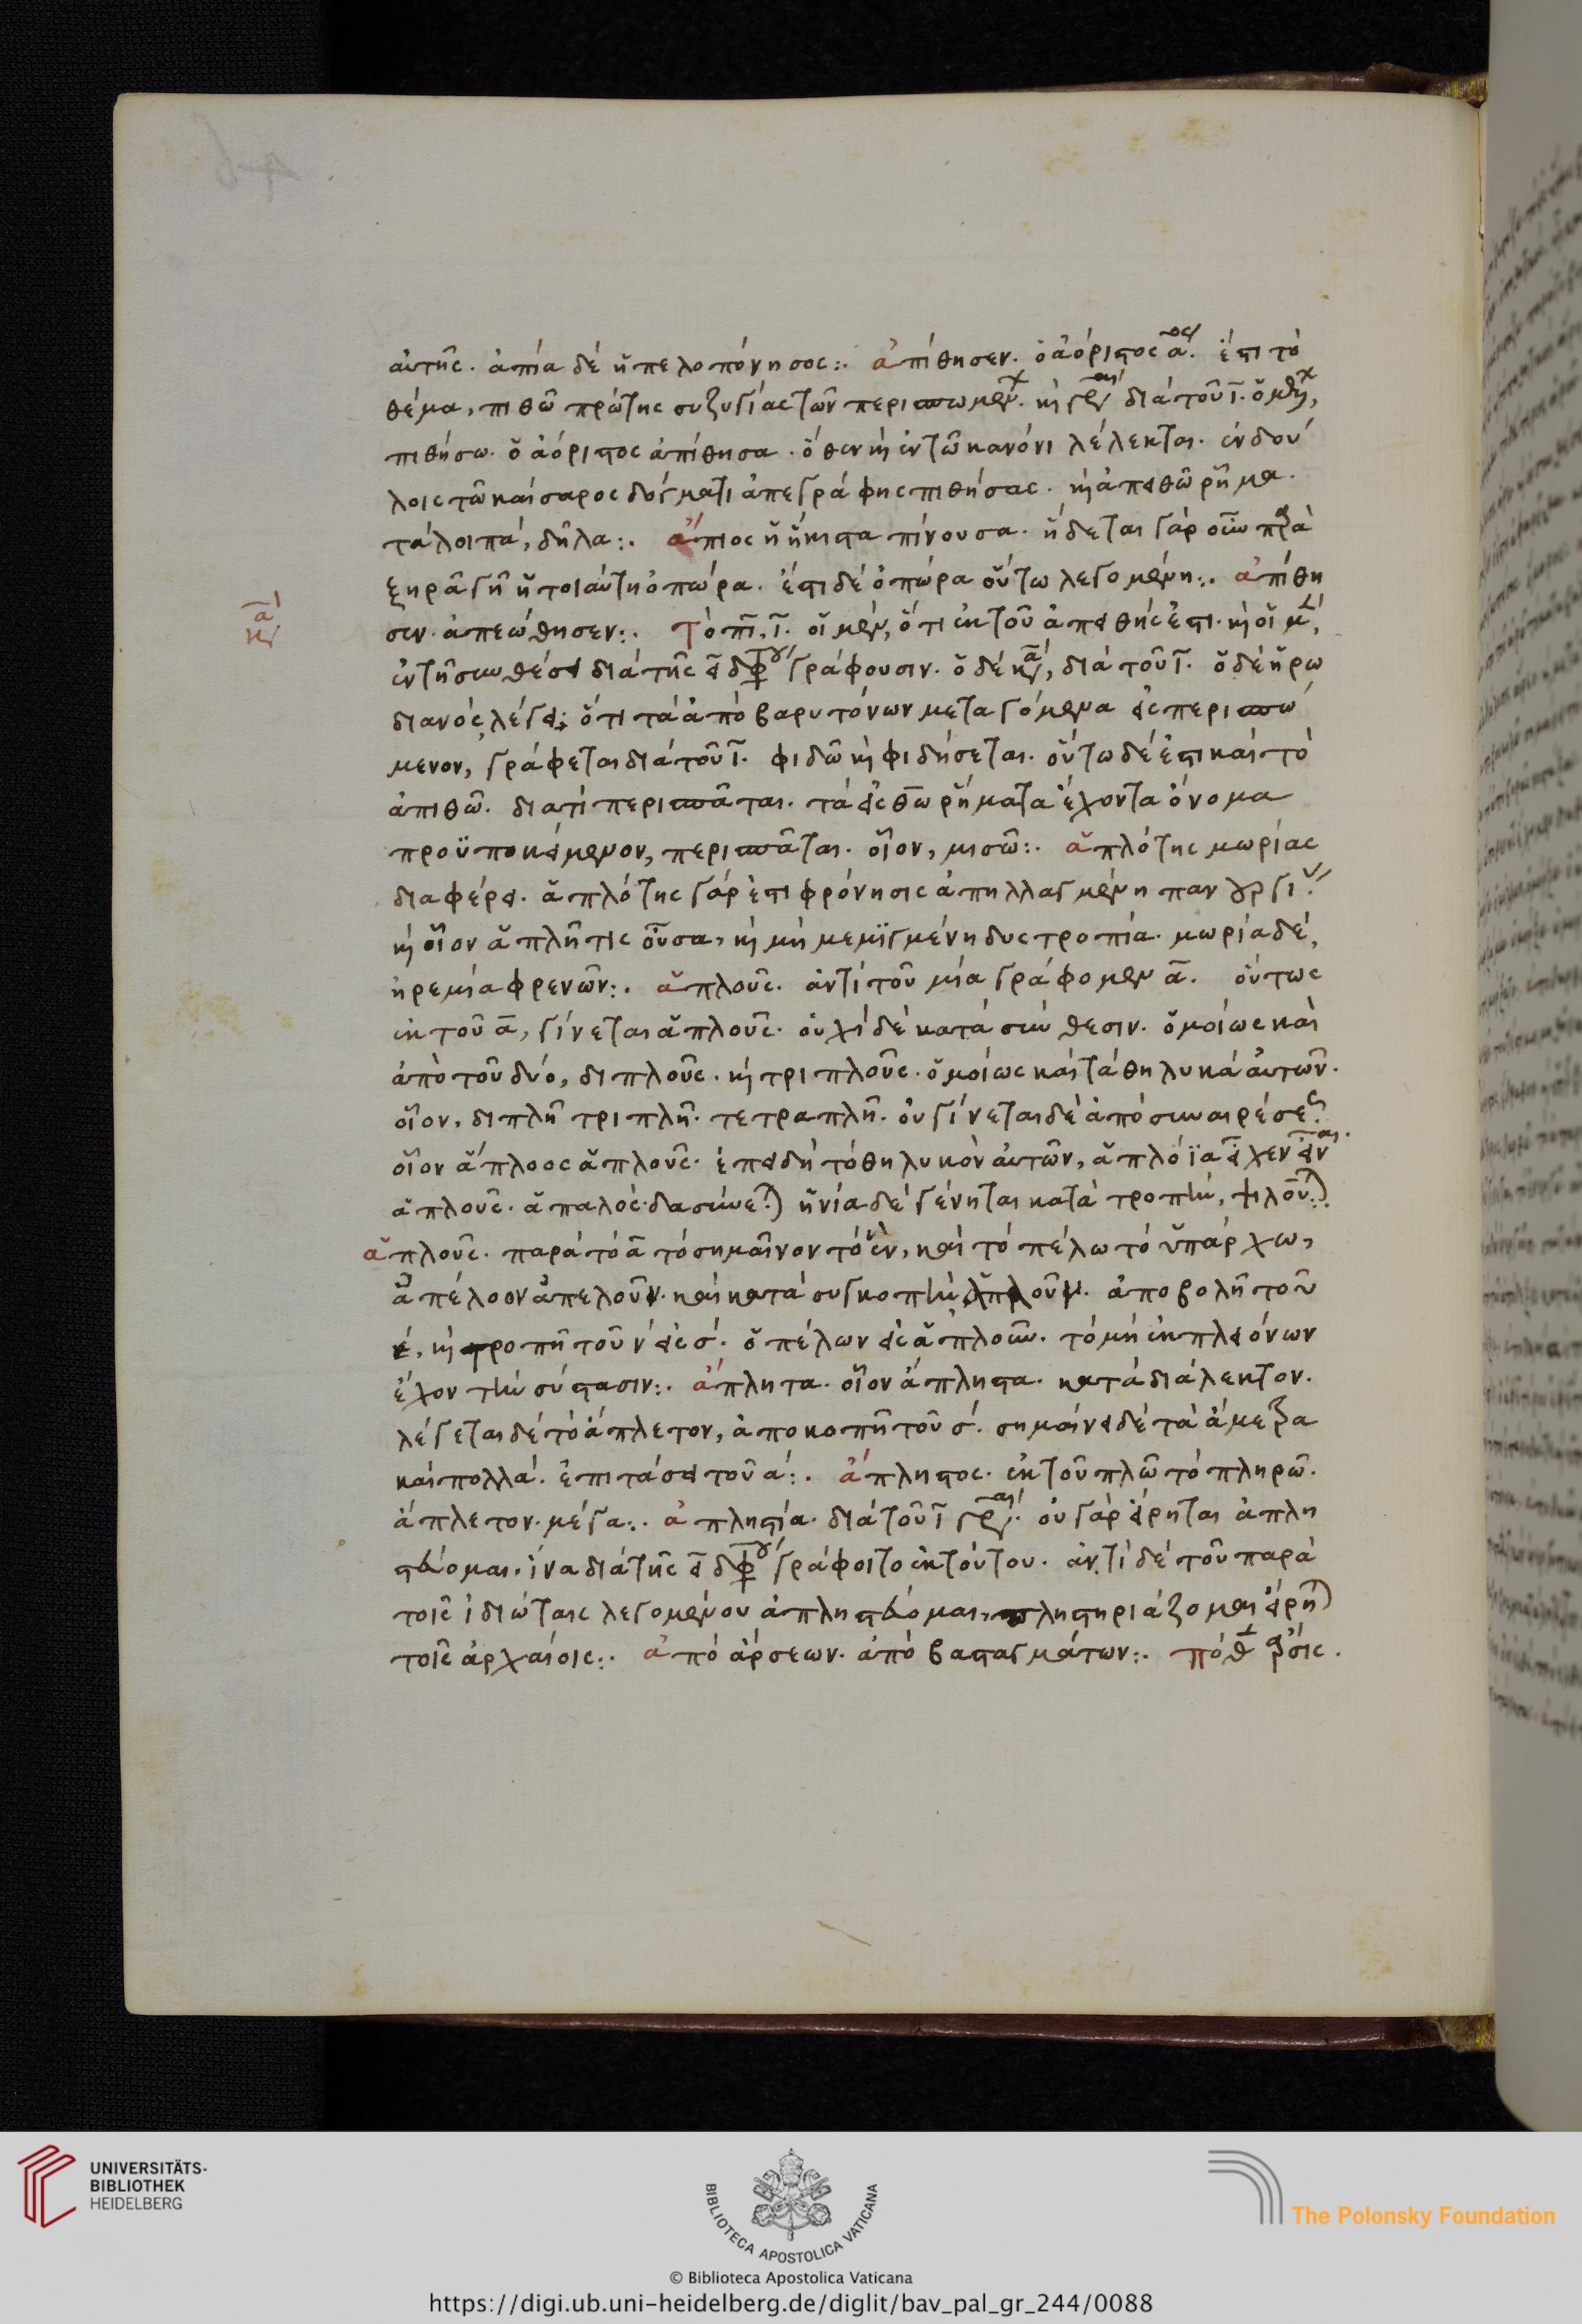 αὐτῆς. ἀπία δὲ ἡ πελοπόννησος:. ἀπίθησεν. ὁ ἀόριστος ᾱος. ἔστι τὸ
θέμα, πιθῶ πρώτης συζυγίας τῶν περισπωμεν. καὶ γρ διὰ τοῦ ῑ. ὁ μελλ,
πιθήσω. ὁ ἀόριστος ἀπίθησα. ὅθεν καὶ ἐν τῶ κανόνι λέλεκται. ἐν δού
λοις τῶ καίσαρος δόγματι ἀπεγράφης πιθήσας. καὶ ἀπειθῶ ρῆμα.
τὰ λοιπὰ, δῆλα:. ἄπιος ἡ ἥκιστα πίνουσα. ἥδεται γὰρ
ξηρᾶ γῆ ἡ τοιαύτη ὀπώρα. ἔστι δὲ ὀπώρα οὕτω λεγομένη:. ἀπίθη
σεν. ἀπεώθησεν:. Τὸ πῑ, ῑ. οἱ μὲν, ὅτι ἐκ τοῦ ἀπειθής ἐστι. καὶ οἱ μ,
ἐν τῆ συνθέσει διὰ τῆς ει διφθόγγου γράφουσιν. ὁ δὲ κᾱν, διὰ τοῦ ῑ. ὁ δὲ ἡρω
διανὸς λέγει, ὅτι τὰ ἀπὸ βαρυτόνων μεταγόμενα εἰς περισπώ
μενον, γράφεται διὰ τοῦ ῑ. φιδῶ καὶ φιδήσεται. οὕτω δέ ἐστι καὶ τὸ
ἀπιθῶ. διατί περισπᾶται. τὰ εἰς θω ρήματα ἔχοντα ὄνομα
προϋποκείμενον, περισπᾶται. οἷον, μισῶ:. ἁπλότης μωρίας
διαφέρει. ἁπλότης γάρ ἐστι φρόνησις ἀπηλλαγμένη πανουργίας
καὶ οἷον ἁπλῆ τις οὖσα, καὶ μὴ μεμϊγμένη δυστροπία. μωρία δὲ,
ἠρεμία φρενῶν:. ἁπλοῦς. ἀντὶ τοῦ μία γράφομεν ᾱ. οὕτως
ἐκ τοῦ ᾱ, γίνεται ἁπλοῦς. οὐχὶ δὲ κατὰ σύνθεσιν. ὁμοίως καὶ
ἀπὸ τοῦ δύο, διπλοῦς. καὶ τριπλοῦς. ὁμοίως καὶ τὰ θηλυκὰ αὐτῶν.
οἷον, διπλῆ τριπλῆ. τετραπλῆ. οὐ γίνεται δὲ ἀπὸ συναιρέσεως
οἷον ἅπλοος ἁπλοῦς. ἐπειδὴ τὸ θηλυκὸν αὐτῶν, ἁπλόϊα εἶχεν εἶναι.
ἁπλοῦς. ἁπαλός. δασύνεται) ἡνία δὲ γένηται κατὰ τροπὴν, ψιλοῦται.
ἁπλοῦς. παρὰ τὸ ᾱ τὸ σημαῖνον τὸ ἓν, καὶ τὸ πέλω τὸ ὑπάρχω,
ἁπέλοον ἁπελοῦν. καὶ κατὰ συγκοπὴν ἁπλοῦν. ἀποβολῆ τοῦ
ε, καὶ τροπῆ τοῦ ν εἰς σ. ὁ πέλων εἰς ἁπλοῦν. τὸ μὴ ἐκ πλειόνων
ἔχον τὴν σύστασιν:. ἄπλητα. οἷον ἄπληστα. κατὰ διάλεκτον.
λέγεται δὲ τὸ ἄπλετον, ἀποκοπῆ τοῦ σ. σημαίνει δὲ τὰ ἄμετρα
καὶ πολλά. ἐπιτάσει τοῦ α:. ἄπληστος. ἐκ τοῦ πλῶ τὸ πληρῶ.
ἄπλετον. μέγα:. ἀπληστία. διὰ τοῦ ῑ γρ. οὐ γὰρ εἴρηται ἀπλη
στεύομαι. ἵνα διὰ τῆς ει διφθόγγου γράφοιτο ἐκ τούτου. ἀντὶ δὲ τοῦ παρὰ
τοῖς ἰδιώταις λεγομένου ἀπληστεύομαι, πληστηριάζομαι εἴρηται
τοῖς ἀρχαίοις:. ἀπὸ ἄρσεων. ἀπὸ βασταγμάτων:. πόθεν ἄρσις.
ᾱ
κν
UNIVERSITÄTS-
BIBLIOTHEK
HEIDELBERG
BIBLIOTECA APOSTOLICA VATICANA
The Polonsky Foundation
© Biblioteca Apostolica Vaticana
https://digi.ub.uni-heidelberg.de/diglit/bav_pal_gr_244/0088